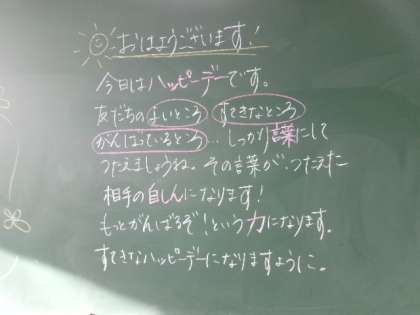 おはようございます!
今日はハッピーデーです。
友だちのよいところ すてきなところ
がんばっているところ…しっかり言葉にして
つたえましょうね。その言葉が、つたえた
相手の自しんになります!
もっとがんばるぞ!という力になります。
すてきなハッピーデーになりますように。